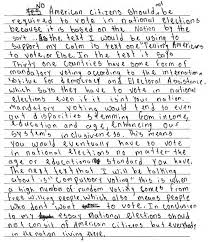 NO American citizens should not be
required to vote in national elections
because it is based on the Nation by the
text. The text I would be using to
support my claim is text one "Telling Americans
to vote, or Else. In the text it says
Thirty one countries have some form of
mandatory voting according to the international
for Democracy and Electoral Assistance.
which says they have to vote in national
elections even if it isnt your nation.
mandatory voting would tend to even
out disparities stemming from income,
education and age, enhancing our
system's inclusiveness. This means
you would eventually have to vote
in national elections no matter the
age or educational standard you have.
The next text that I will be talking
about is "Compulsory voting" this is when
a high number of random voting comes from
free willing people. which also means people
who don't want to vote. In conclusion
to my essay National Elections should
not consist of American citizens but everybody
in the nation living here.